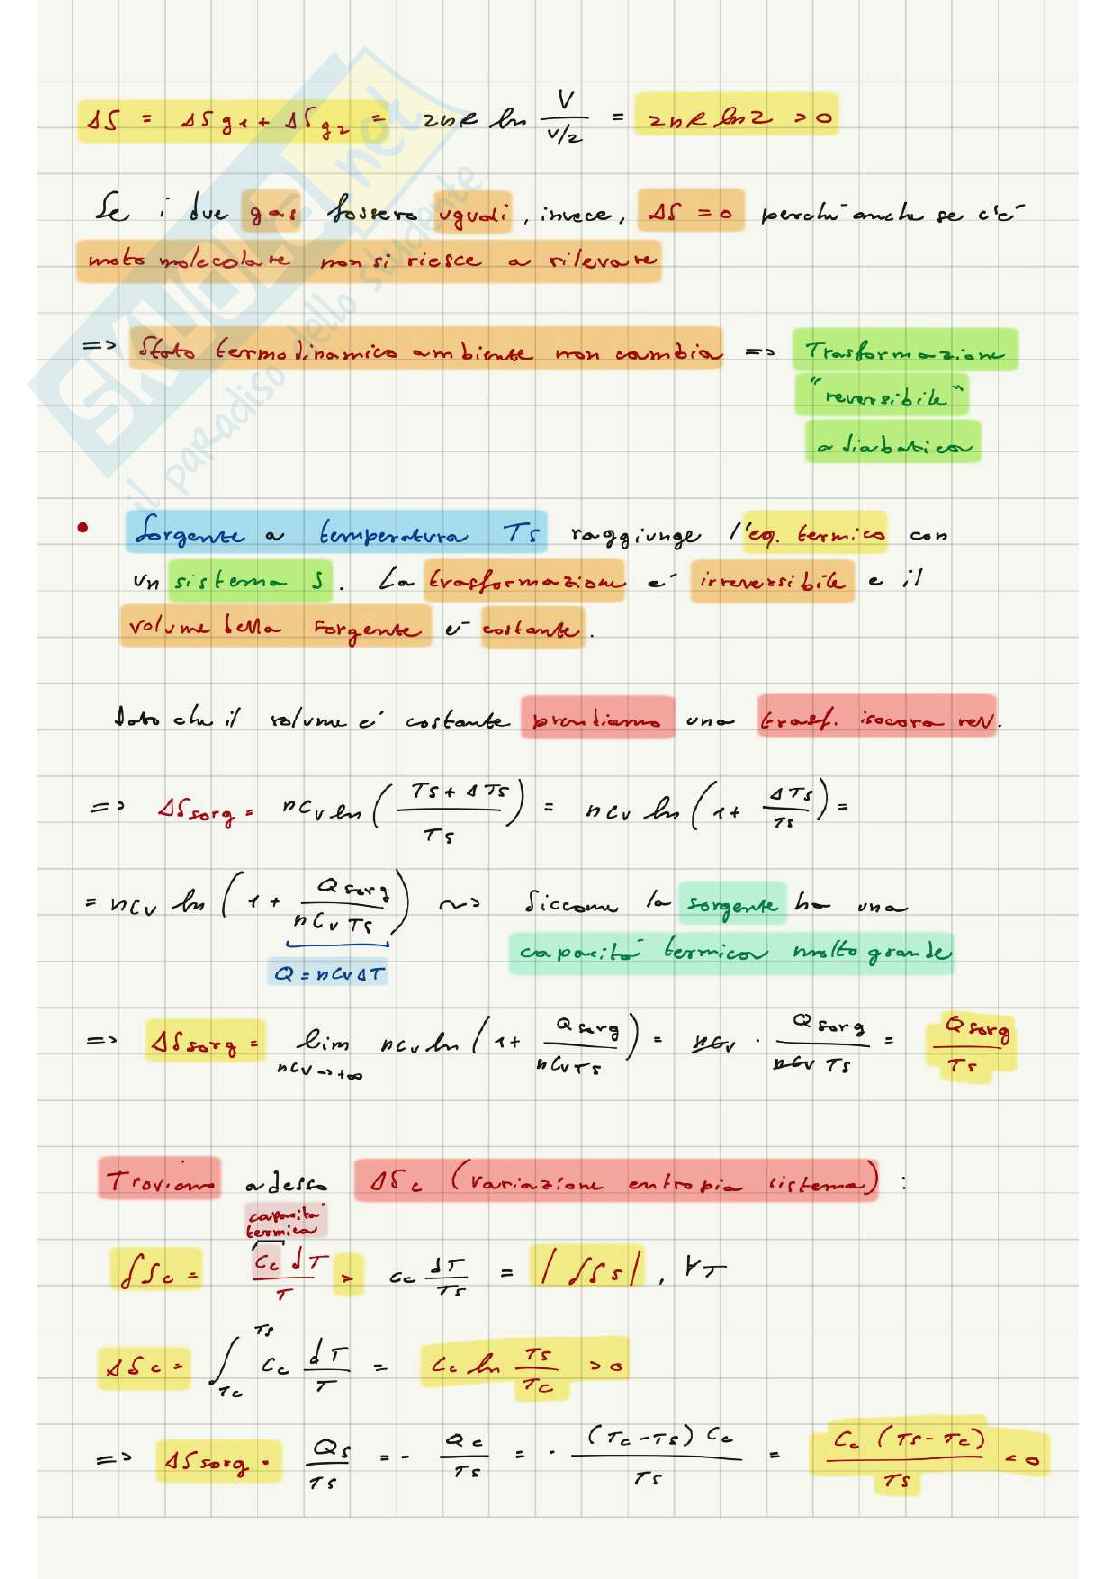 ΔS = ΔS g1 + ΔS g2 = 2nR ln V / V/2 = 2nR ln 2 > 0
Se i due gas fossero uguali, invece, ΔS = 0 perché anche se c'è
moto molecolare non si riesce a rilevare
=> Stato termodinamico ambiente non cambia => Trasformazione
"reversibile"
adiabatica
SKUOLA.net
il paradiso dello studente
• Sorgente a temperatura Ts raggiunge l'eq. termico con
un sistema S. La trasformazione è irreversibile e il
volume della sorgente è costante.
Dato che il volume è costante prendiamo una trasf. isocora rev.
=> ΔSsorg = nCv ln ( Ts + ΔTs / Ts ) = nCv ln ( 1 + ΔTs / Ts ) =
= nCv ln ( 1 + Qsorg / nCv Ts ) ~> Siccome la sorgente ha una
capacità termica molto grande
Q = nCvΔT
=> ΔSsorg = lim nCv->+∞ nCv ln ( 1 + Qsorg / nCv Ts ) = nCv · Qsorg / nCv Ts = Qsorg / Ts
Troviamo adesso ΔSc (variazione entropia sistema) :
capacità
termica
dSc = Cc dT / T > Cc dT / Ts = |dSs|, ∀T
ΔSc = ∫ Tc Ts Cc dT / T = Cc ln Ts / Tc > 0
=> ΔSsorg = Qs / Ts = - Qc / Ts = - (Tc - Ts) Cc / Ts = Cc (Ts - Tc) / Ts < 0